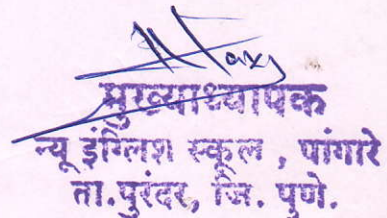 मुख्याध्यापक
न्यू इंग्लिश स्कूल, पांगारे
ता.पुरंदर, जि. पुणे.